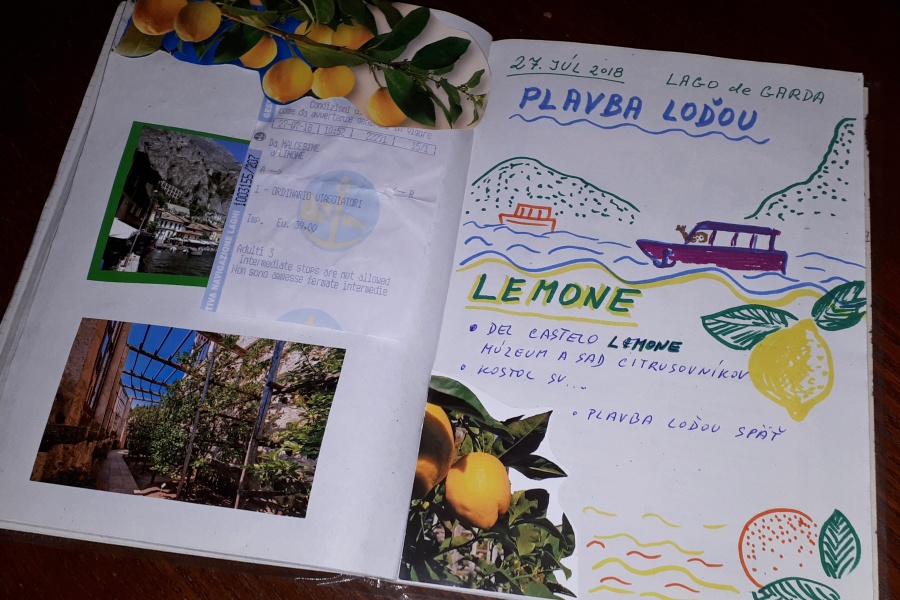 Condizioni
come da avvertenze
27-07-18 | 10:52
Da MALCESINE
a LIMONE
A
R
1 - ORDINARIO VIAGGIATORI
Imp. Eu. 39,00
Adulti 3
Intermediate stops are not allowed
Non sono ammesse fermate intermedie
1003155/207
NAVIGAZIONE LAGHI
27. JÚL 2018
LAGO de GARDA
PLAVBA LOĎOU
LEMONE
• DEL CASTELO LEMONE
MÚZEUM A SAD CITRUSOVNÍKOV
• KOSTOL SV...
• PLAVBA LOĎOU SPÄŤ